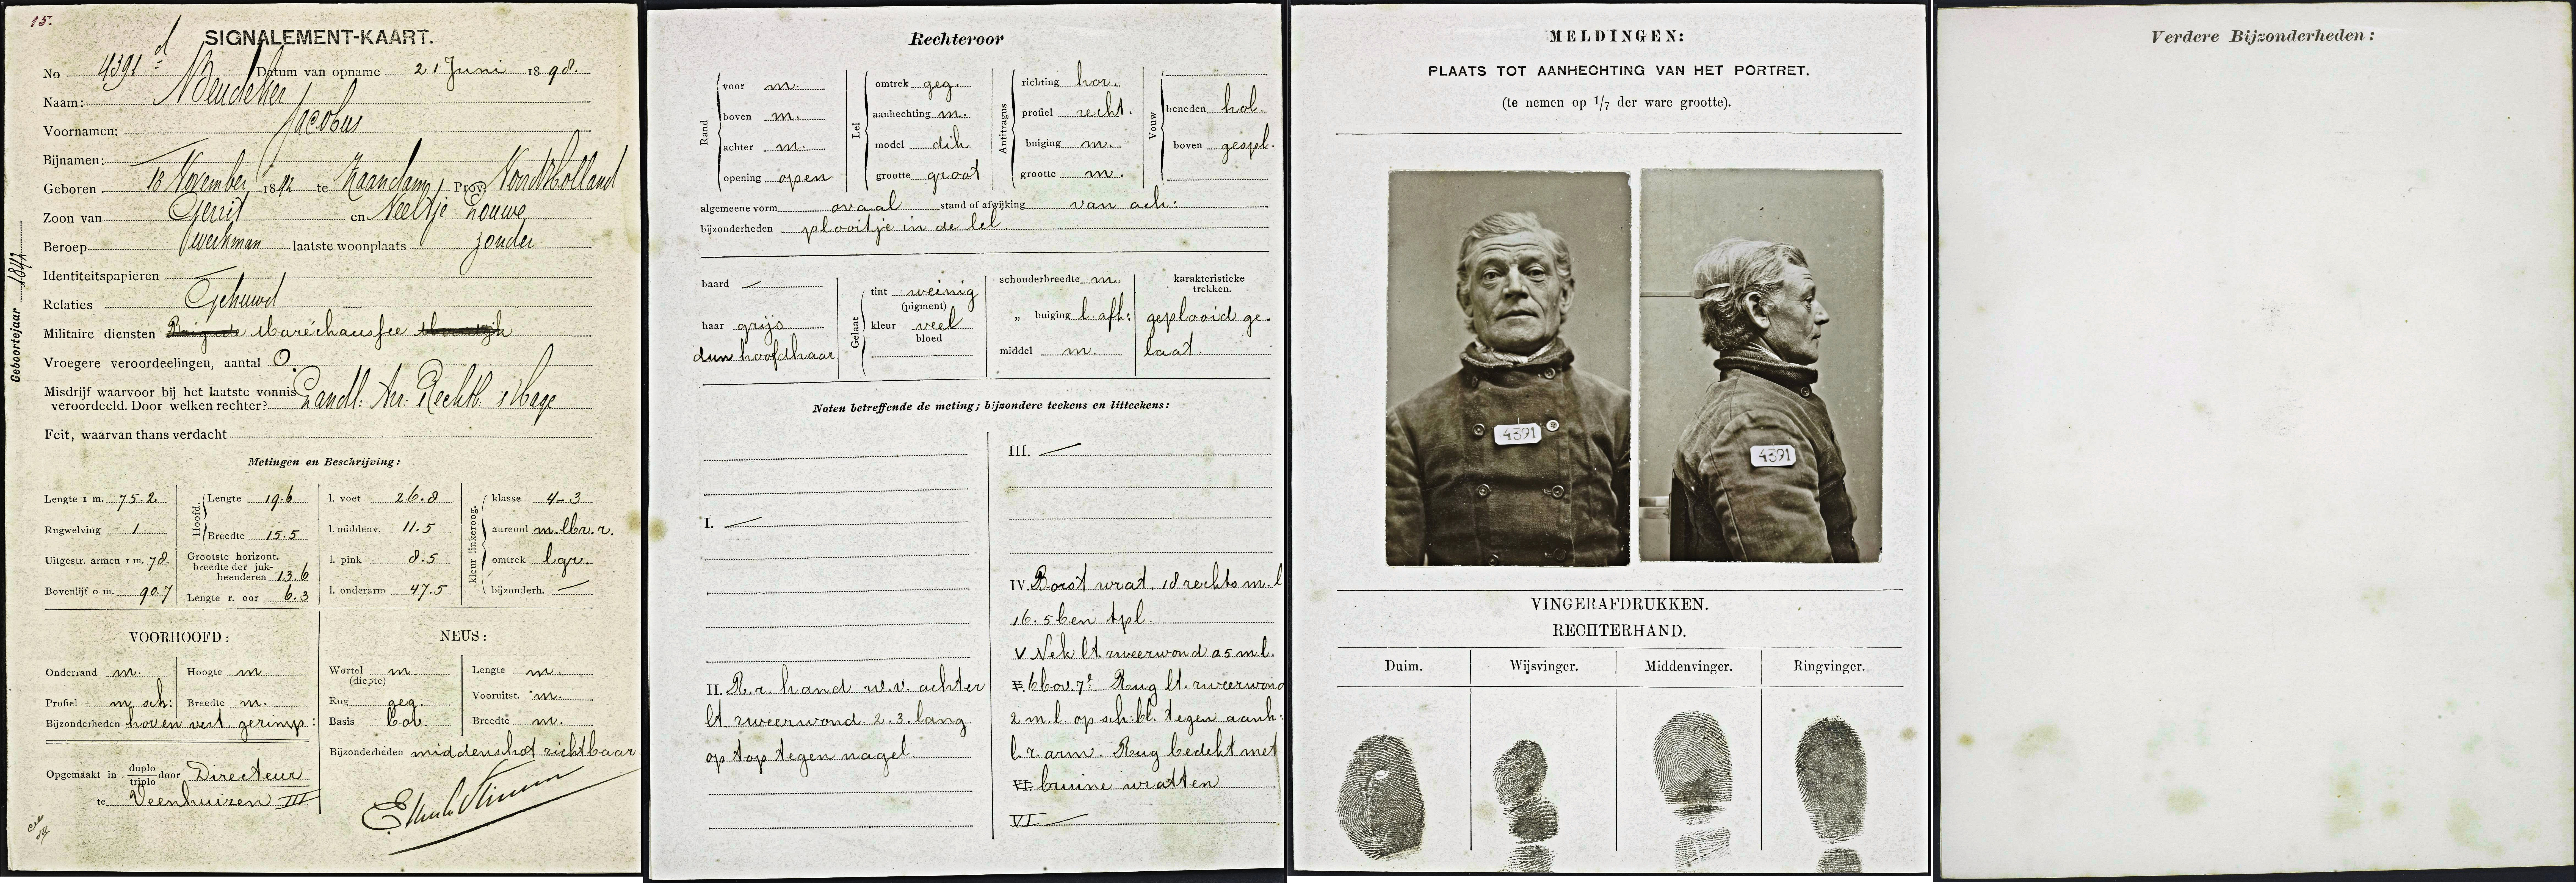 15.
SIGNALEMENT-KAART.
No 4391 d Datum van opname 21 Juni 1898.
Naam:
Voornamen: Jacobus
Bijnamen:
Geboren 18 November 1842 te Zaandam, Prov. Noordholland
Zoon van Gerrit en Neeltje Louwe
Beroep werkman laatste woonplaats zonder
Identiteitspapieren
Relaties Gehuwd
Militaire diensten Brigade Maréchaussee
Vroegere veroordeelingen, aantal 0.
Misdrijf waarvoor bij het laatste vonnis
veroordeeld. Door welken rechter? Landl: Arr: Rechtb: s'Hage
Feit, waarvan thans verdacht
Geboortejaar 1842
Metingen en Beschrijving:
Lengte 1 m. 75.2 Hoofd. Lengte 19.6 l. voet 26.8 kleur linkeroog. klasse 4-3
Rugwelving 1 Breedte 15.5 l. middenv. 11.5 aureool m. lbr. r.
Uitgestr. armen 1 m. 78. Grootste horizont. breedte der juk-beenderen 13.6 l. pink 8.5 omtrek lgr.
Bovenlijf 0 m. 90.7 Lengte r. oor 6.3 l. onderarm 47.5 bijzonderh. —
VOORHOOFD: NEUS:
Onderrand m. Hoogte m. Wortel (diepte) m. Lengte m.
Profiel m sch: Breedte m. Rug geg. Vooruitst. m.
Bijzonderheden hor en vert. gerimp: Basis hor. Breedte m.
Bijzonderheden middenshot zichtbaar
Opgemaakt in duplo triplo door Directeur
te Veenhuizen III
Rechteroor
Rand voor m. Lel omtrek geg. Antitragus richting hor. Vouw
boven m. aanhechting m. profiel recht. beneden hol.
achter m. model dik buiging m. boven gespl.
opening open grootte groot grootte m.
algemeene vorm ovaal stand of afwijking van ach:
bijzonderheden plooitje in de lel.
baard — Gelaat tint weinig (pigment) schouderbreedte m. karakteristieke trekken.
haar grijs kleur veel bloed „ buiging l. afh: geplooid ge-
dun hoofdhaar middel m. laat.
Noten betreffende de meting; bijzondere teekens en litteekens:
I. —
II. R. r. hand w. v. achter
lt. zweerwond. 2.3. lang
op top tegen nagel.
III. —
IV. Borst wrat. 18 rechts m. l
16. 5 ben tpl.
V Nek lt. zweerwond a 5 m. l.
V. 6 bov. 7e Rug lt. zweerwond
2 m. l. op sch: bl. tegen aanh:
l. r. arm. Rug bedekt met
VI. bruine wratten
VI —
MELDINGEN:
PLAATS TOT AANHECHTING VAN HET PORTRET.
(te nemen op 1/7 der ware grootte).
4391
4391
VINGERAFDRUKKEN.
RECHTERHAND.
Duim. Wijsvinger. Middenvinger. Ringvinger.
Verdere Bijzonderheden: